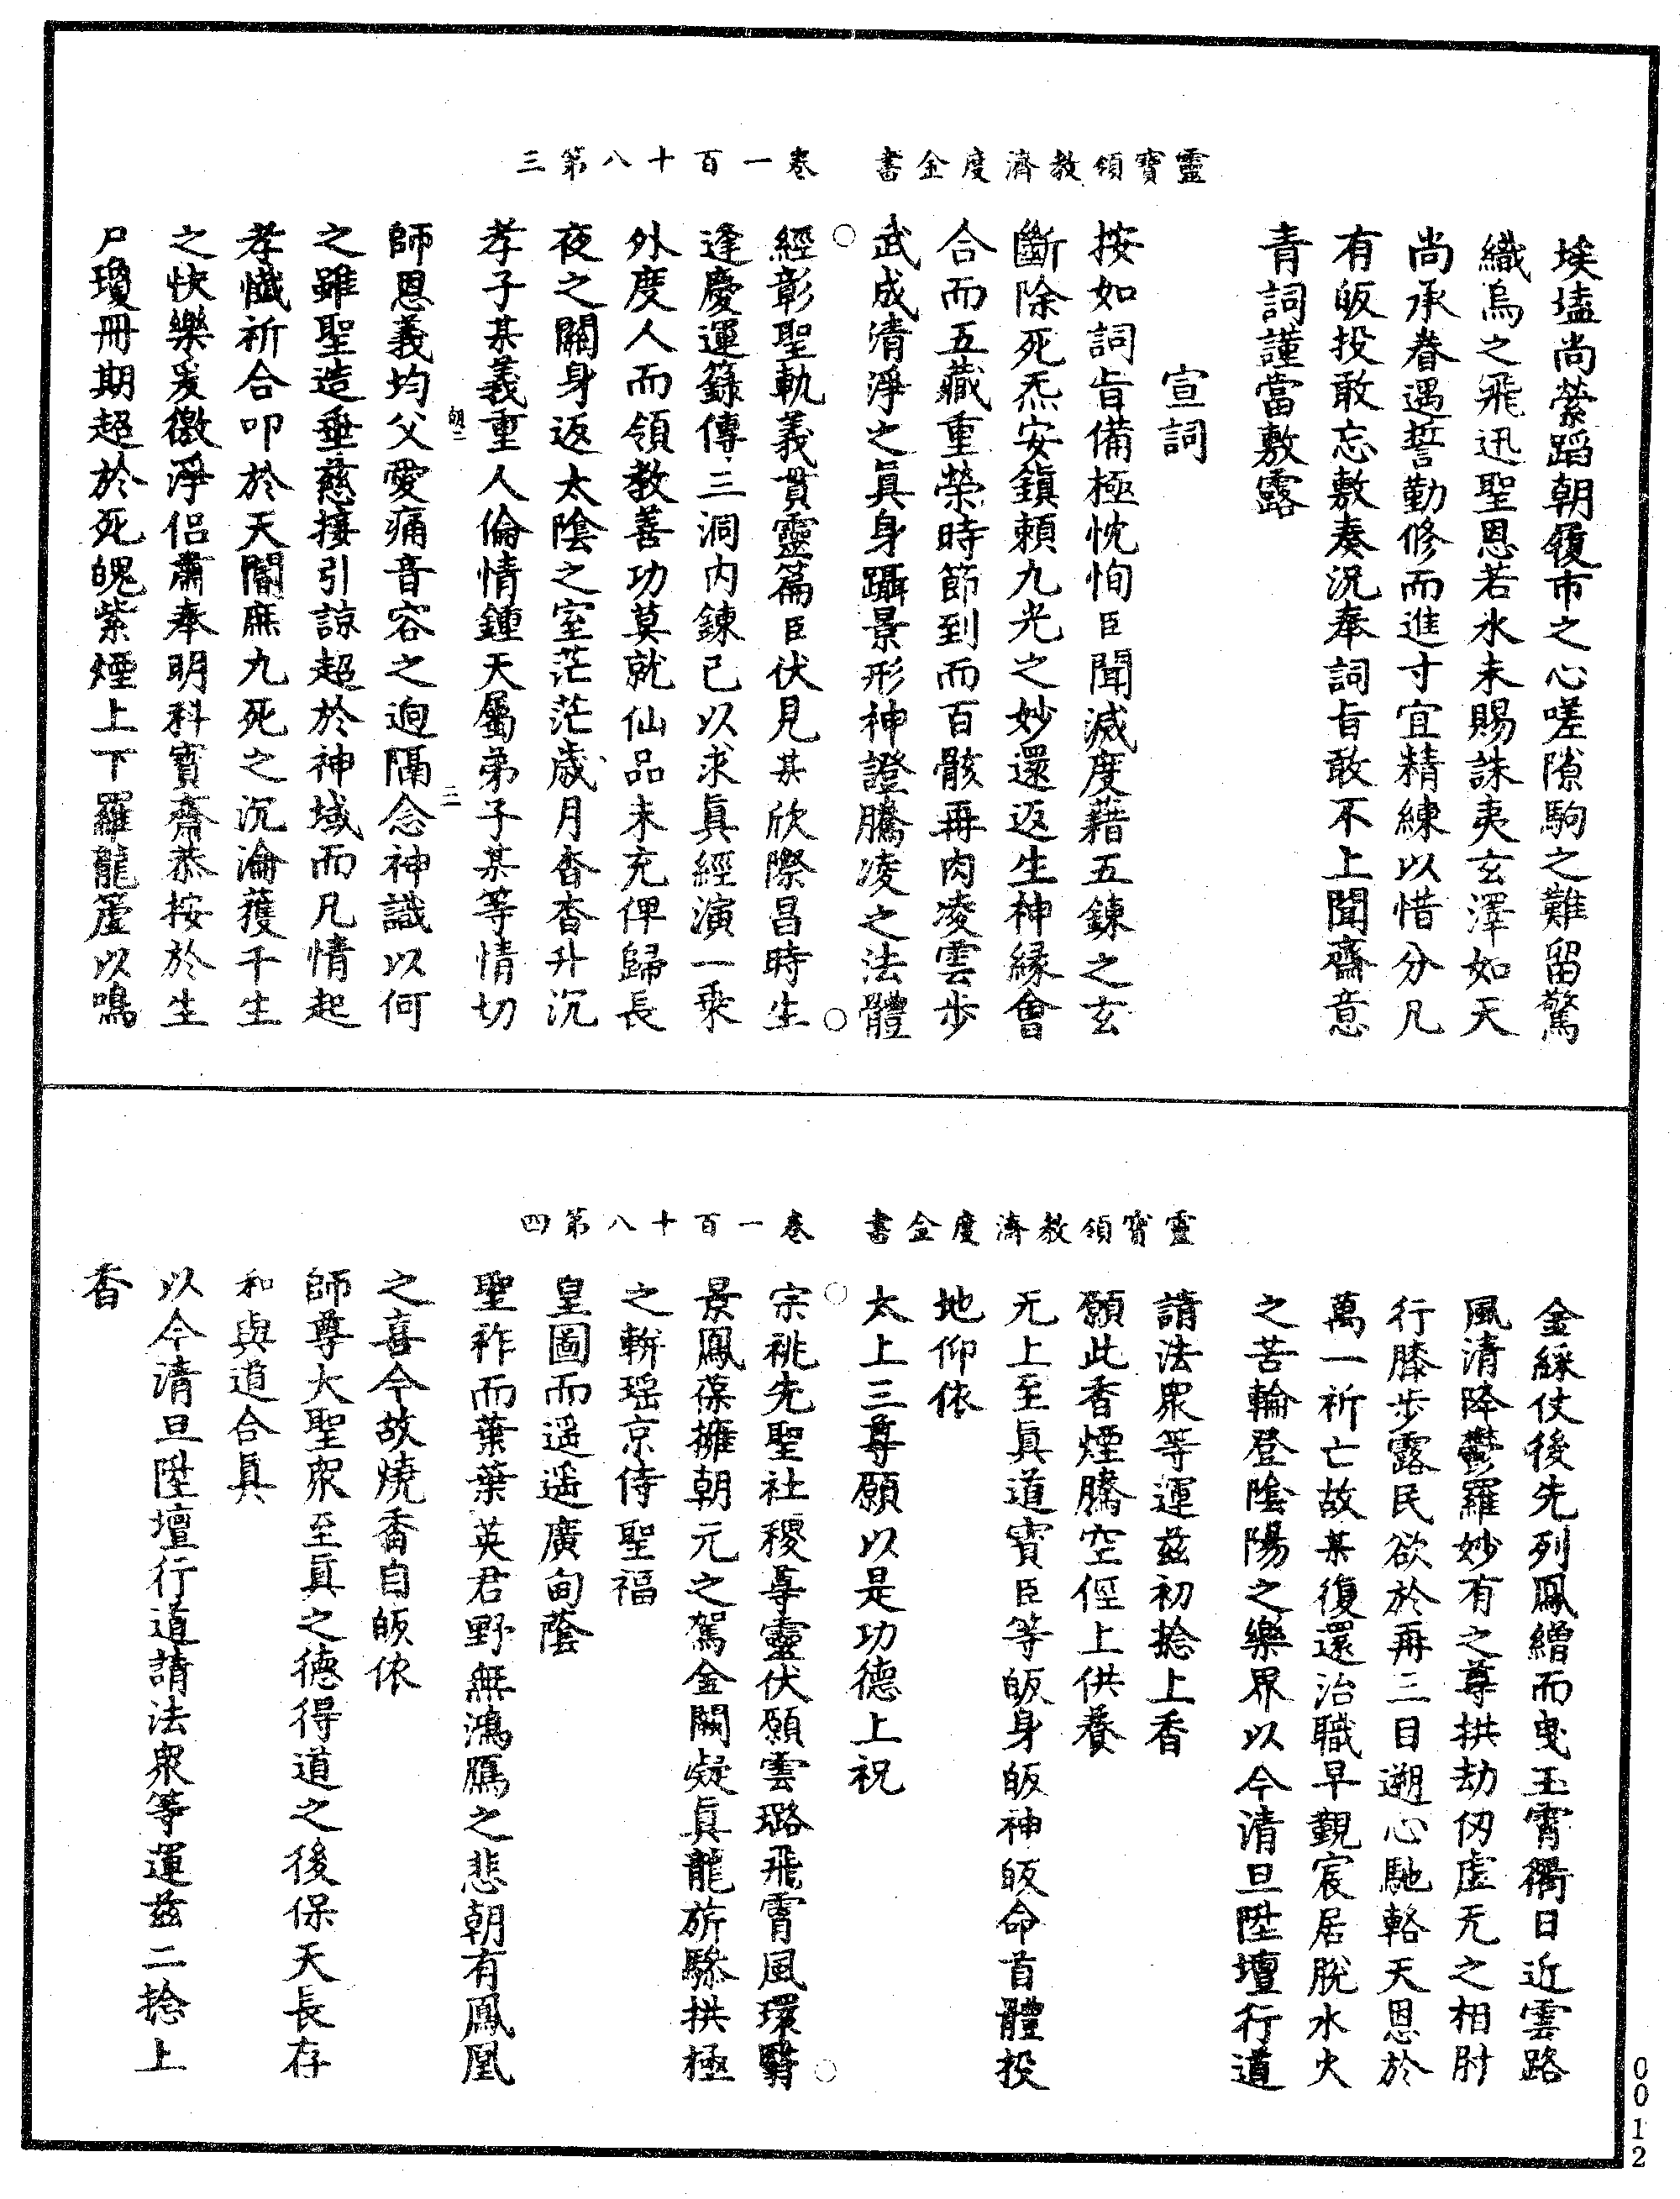 靈寶領教濟度金書　卷一百十八第三
埃壒尚縈蹈朝履市之心嗟隙駒之難留驚
織烏之飛迅聖恩若水未賜誅夷玄澤如天
尚承眷遇誓勤修而進寸宜精練以惜分凡
有皈投敢忘敷奏況奉詞旨敢不上聞齋意
青詞謹當敷露
宣詞
按如詞旨備極忱恂臣聞滅度藉五鍊之玄
斷除死炁安鎮賴九光之妙還返生神緣會
合而五藏重榮時節到而百骸再肉凌雲步
武成清淨之眞身躡景形神證騰凌之法體
經彰聖軌義貫靈篇臣伏見某欣際昌時生
逢慶運籙傳三洞內鍊已以求眞經演一乘
外度人而領教善功莫就仙品未充俾歸長
夜之關身返太陰之室茫茫歲月杳杳升沉
孝子某義重人倫情鍾天屬弟子某等情切
朝二　三
師恩義均父愛痛音容之迥隔念神識以何
之雖聖造垂慈接引諒超於神域而凡情起
孝懺祈合叩於天閽庶九死之沉淪獲千生
之快樂爰徵淨侶肅奉明科寶齋恭按於生
尸瓊冊期超於死魄紫煙上下羅龍簷以鳴
靈寶領教濟度金書　卷一百十八第四
金綵仗後先列鳳繒而曳玉霄衢日近雲路
風清降鬱羅妙有之尊拱劫仞虛无之相肘
行膝步露民欲於再三目遡心馳輅天恩於
萬一祈亡故某復還治職早觀宸居脫水火
之苦輪登陰陽之樂界以今清旦陞壇行道
請法眾等運茲初捻上香
願此香煙騰空俓上供養
无上至眞道寶臣等皈身皈神皈命首體投
地仰依
太上三尊願以是功德上祝
宗祧先聖社稷尊靈伏願雲璐飛霄風環翳
景鳳葆擁朝元之駕金闕凝眞龍旂驂拱極
之輧瑶京侍聖福
皇圖而遥遥廣甸蔭
聖祚而葉葉英君野無鴻鴈之悲朝有鳳凰
之喜今故燒香自皈依
師尊大聖眾至眞之德得道之後保天長存
和與道合眞
以今清旦陞壇行道請法眾等運茲二捻上
香
0012